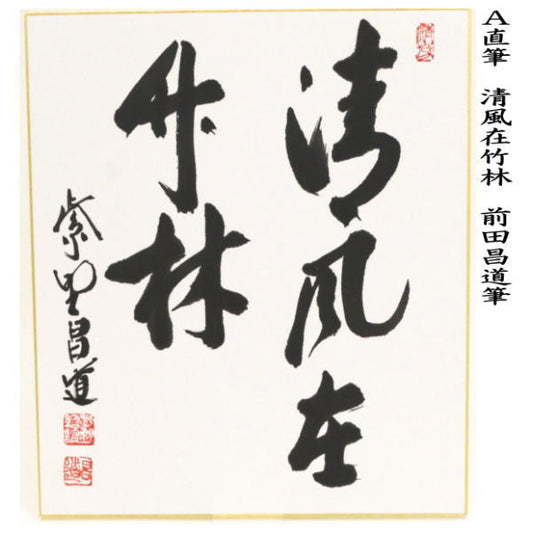 A直筆　清風在竹林　前田昌道筆
清風在
竹林
紫野昌道